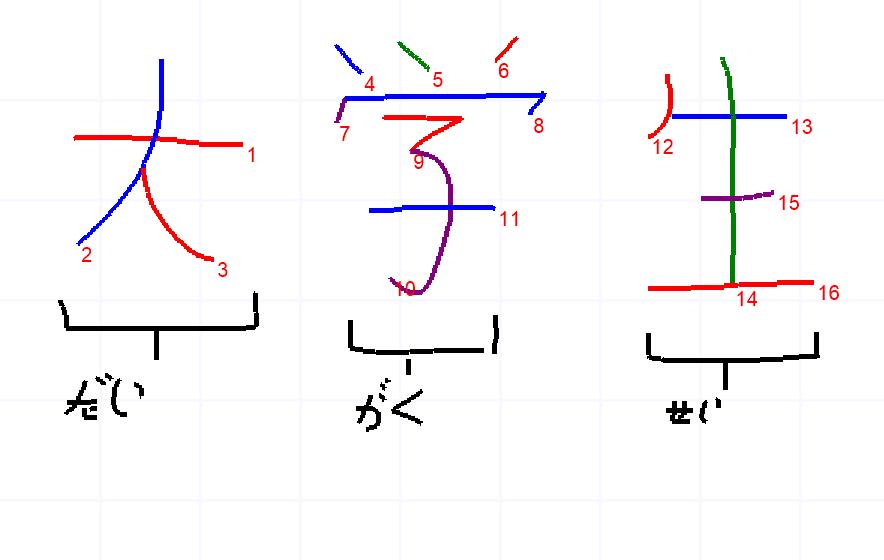 大 学 生
1 2 3 4 5 6 7 8 9 10 11 12 13 14 15 16
だい がく せい